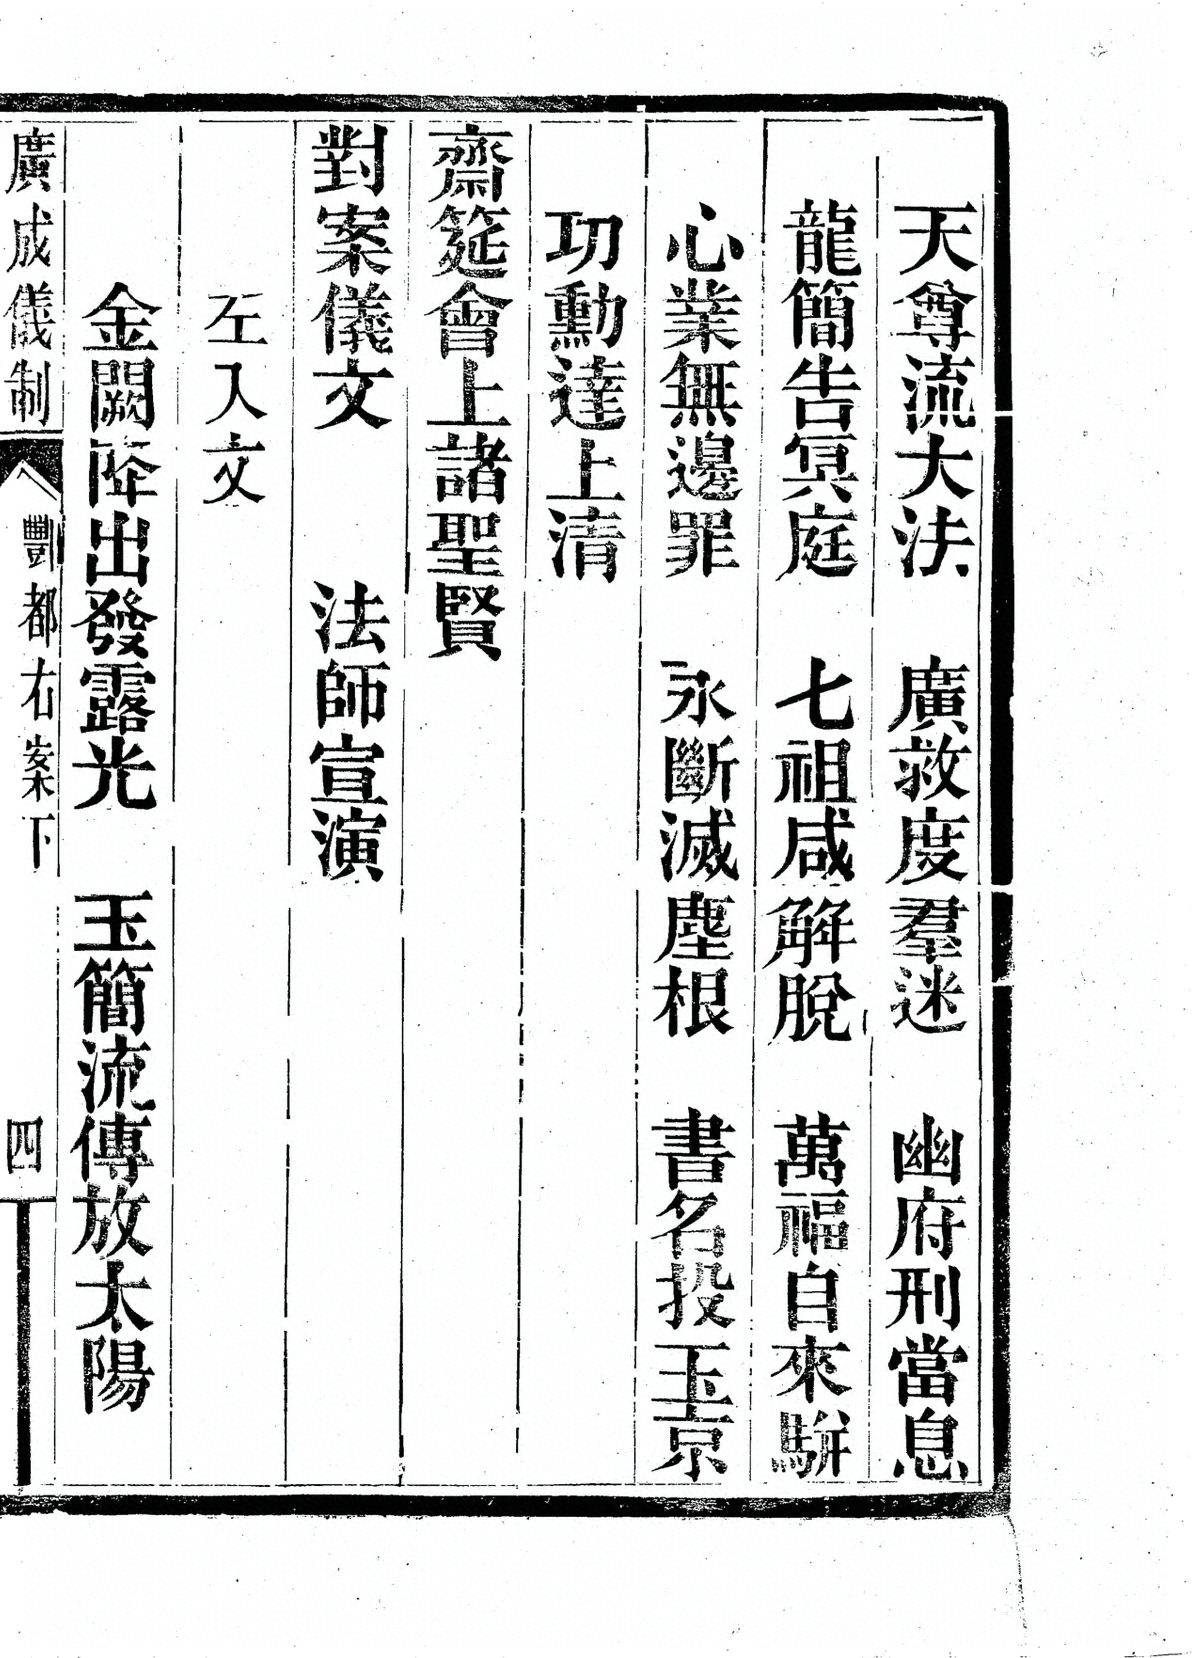 天尊流大法　廣救度羣迷　幽府刑當息
龍簡告冥庭　七祖咸解脫　萬福自來駢
心業無邊罪　永斷滅塵根　書名投玉京
功勳達上清
齋筵會上諸聖賢
對案儀文　法師宣演
左入文
金闕降出發露光　玉簡流傳放太陽
廣成儀制　酆都右案下　四